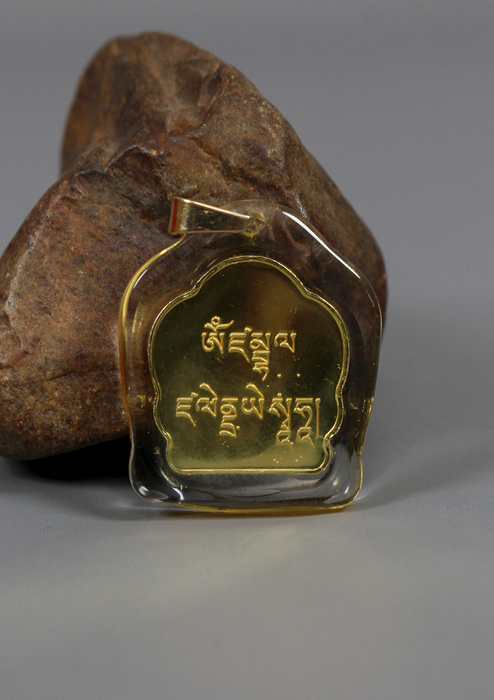 ཨོཾཛམྦྷལ
ཛལེནྡྲཡེསྭཱཧཱ།